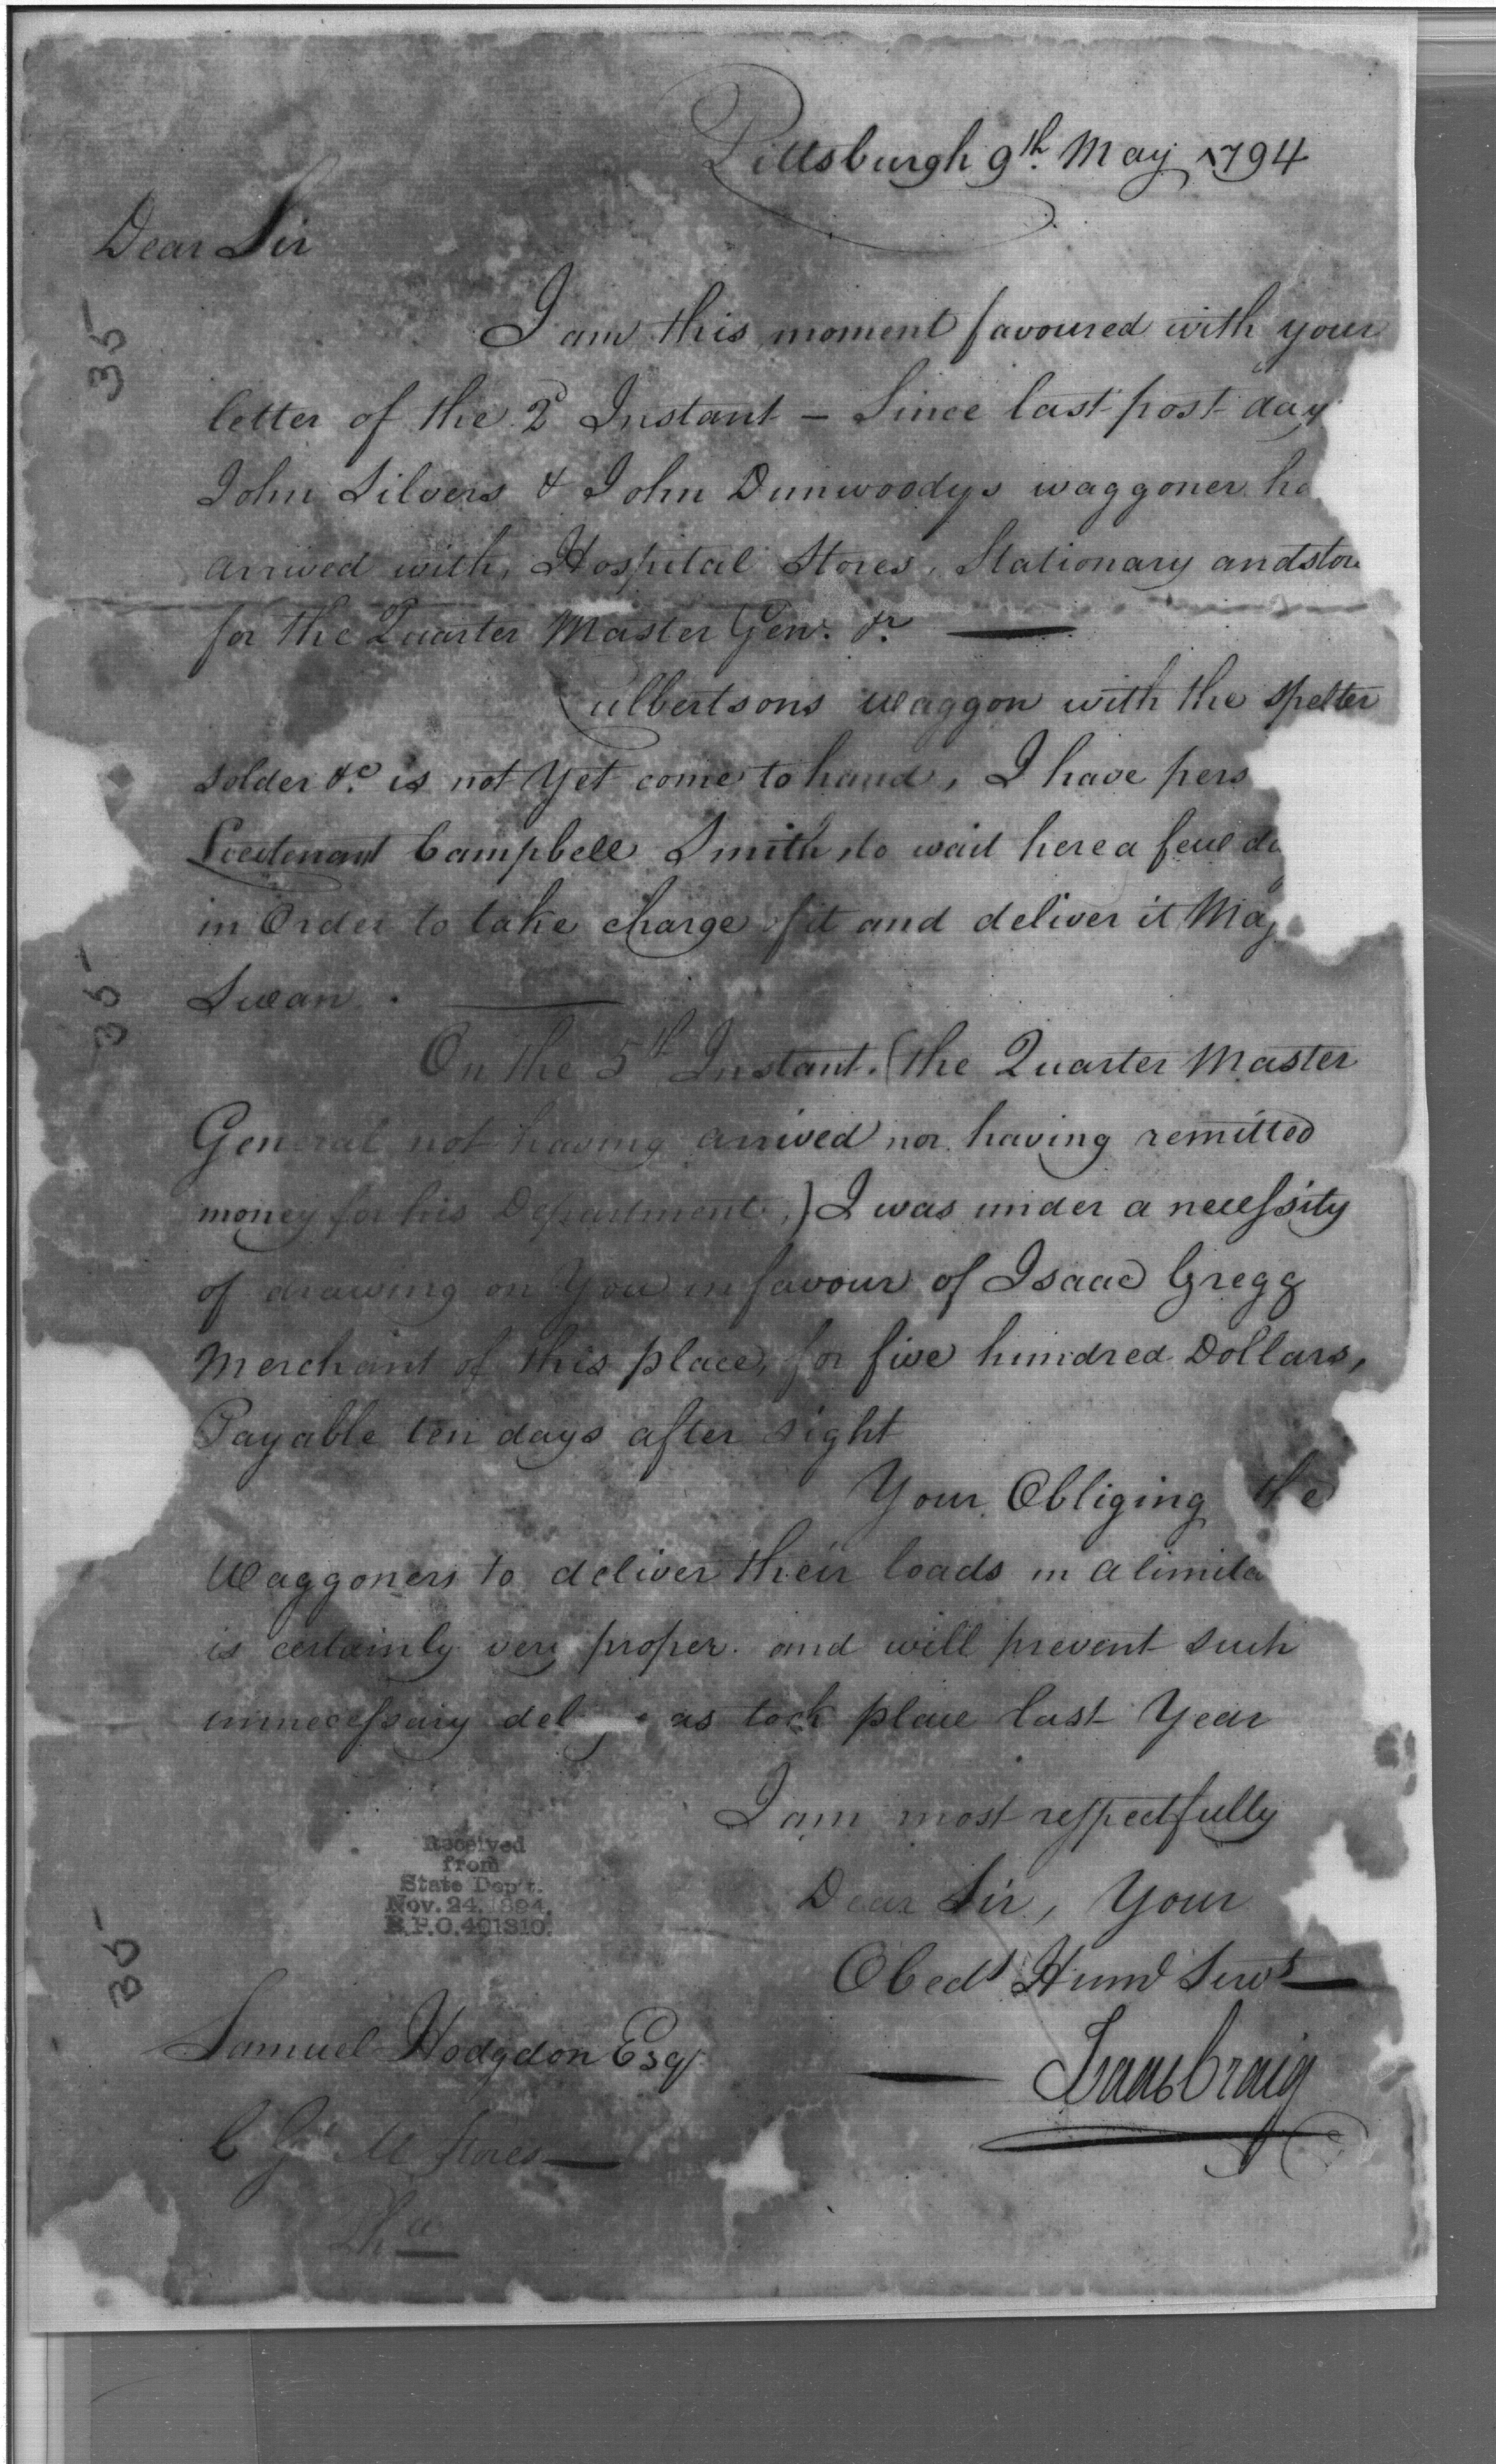 Pittsburgh 9th. May 1794
Dear Sir
I am this moment favoured with your
letter of the 2d Instant – Since last post day
John Silvers & John Dunwoodys waggoner ha
arrived with, Hospital Stores, Stationary and stor
for the Quarter Master Genl. &c
Culbertsons waggon with the spelter
solder &c. is not Yet come to hand, I have pers
Lieutenant Campbell Smith to wait here a few da
in Order to take charge of it and deliver it Maj
Swan.
On the 5th Instant. (the Quarter Master
General not having arrived nor having remitted
money for his Department,) I was under a necessity
of drawing on You in favour of Isaac Gregg
Merchant of this place, for five hundred Dollars,
Payable ten days after sight
Your Obliging the
Waggoners to deliver their loads in a limite
is certainly very proper. and will prevent such
unnecessary del as took place last Year
I am most respectfully
Dear Sir, Your
Obedt Huml Servt
Isaac Craig
Samuel Hodgdon Esqr
C Gl M Stores
Pha
Received
from
State Dep't.
Nov. 24, 1894,
R.P.O. 401310.
35
35
35